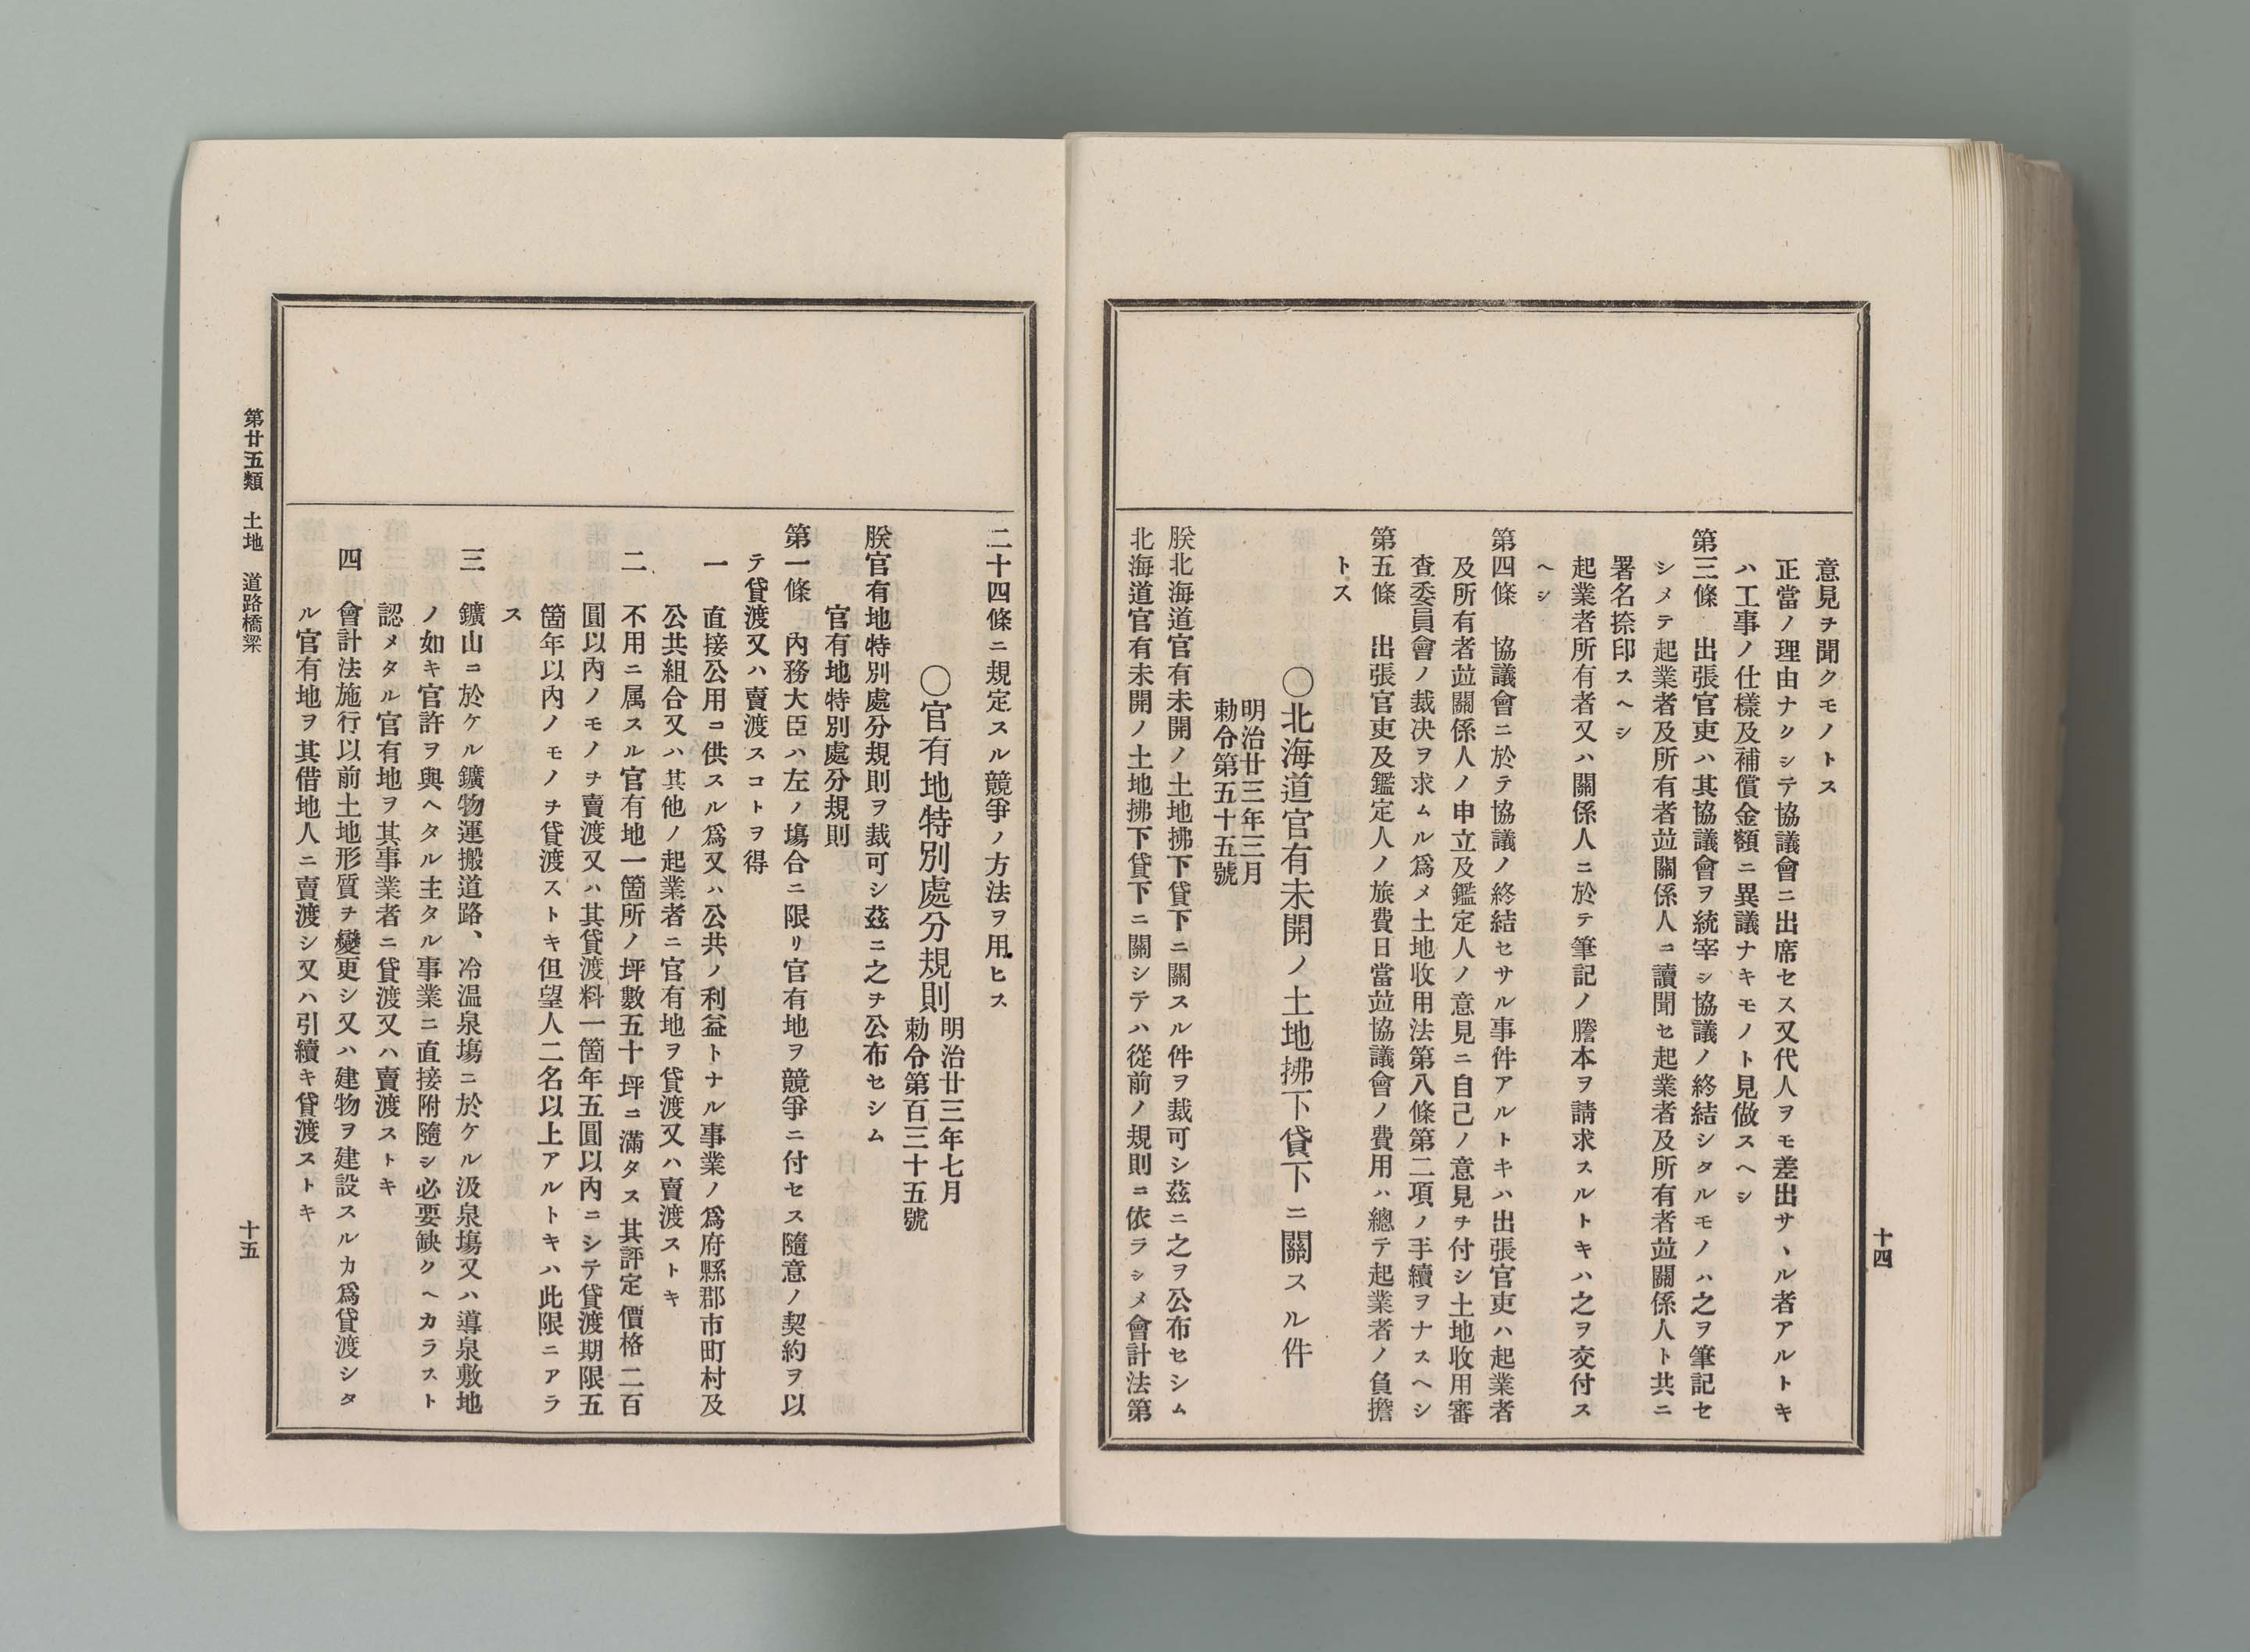 意見ヲ聞クモノトス
正當ノ理由ナクシテ協議會ニ出席セス又代人ヲモ差出サヽル者アルトキ
ハ工事ノ仕樣及補償金額ニ異議ナキモノト見做スヘシ
第三條　出張官吏ハ其協議會ヲ統宰シ協議ノ終結シタルモノハ之ヲ筆記セ
シメテ起業者及所有者竝關係人ニ讀聞セ起業者及所有者竝關係人ト共ニ
署名捺印スヘシ
起業者所有者又ハ關係人ニ於テ筆記ノ謄本ヲ請求スルトキハ之ヲ交付ス
ヘシ
第四條　協議會ニ於テ協議ノ終結セサル事件アルトキハ出張官吏ハ起業者
及所有者竝關係人ノ申立及鑑定人ノ意見ニ自己ノ意見ヲ付シ土地收用審
査委員會ノ裁決ヲ求ムル爲メ土地收用法第八條第二項ノ手續ヲナスヘシ
第五條　出張官吏及鑑定人ノ旅費日當竝協議會ノ費用ハ總テ起業者ノ負擔
トス
○北海道官有未開ノ土地拂下貸下ニ關スル件
明治廿三年三月
勅令第五十五號
朕北海道官有未開ノ土地拂下貸下ニ關スル件ヲ裁可シ茲ニ之ヲ公布セシム
北海道官有未開ノ土地拂下貸下ニ關シテハ從前ノ規則ニ依ラシメ會計法第
十四
二十四條ニ規定スル競爭ノ方法ヲ用ヒス
○官有地特別處分規則
明治廿三年七月
勅令第百三十五號
朕官有地特別處分規則ヲ裁可シ茲ニ之ヲ公布セシム
官有地特別處分規則
第一條　內務大臣ハ左ノ塲合ニ限リ官有地ヲ競爭ニ付セス隨意ノ契約ヲ以
テ貸渡又ハ賣渡スコトヲ得
一　直接公用ニ供スル爲又ハ公共ノ利益トナル事業ノ爲府縣郡市町村及
公共組合又ハ其他ノ起業者ニ官有地ヲ貸渡又ハ賣渡ストキ
二　不用ニ属スル官有地一箇所ノ坪數五十坪ニ滿タス其評定價格二百
圓以內ノモノヲ賣渡又ハ其貸渡料一箇年五圓以內ニシテ貸渡期限五
箇年以內ノモノヲ貸渡ストキ但望人二名以上アルトキハ此限ニアラ
ス
三　鑛山ニ於ケル鑛物運搬道路、冷溫泉塲ニ於ケル汲泉塲又ハ導泉敷地
ノ如キ官許ヲ與ヘタル主タル事業ニ直接附隨シ必要缺クヘカラスト
認メタル官有地ヲ其事業者ニ貸渡又ハ賣渡ストキ
四　會計法施行以前土地形質ヲ變更シ又ハ建物ヲ建設スルカ爲貸渡シタ
ル官有地ヲ其借地人ニ賣渡シ又ハ引續キ貸渡ストキ
第廿五類　土地　道路橋梁
十五